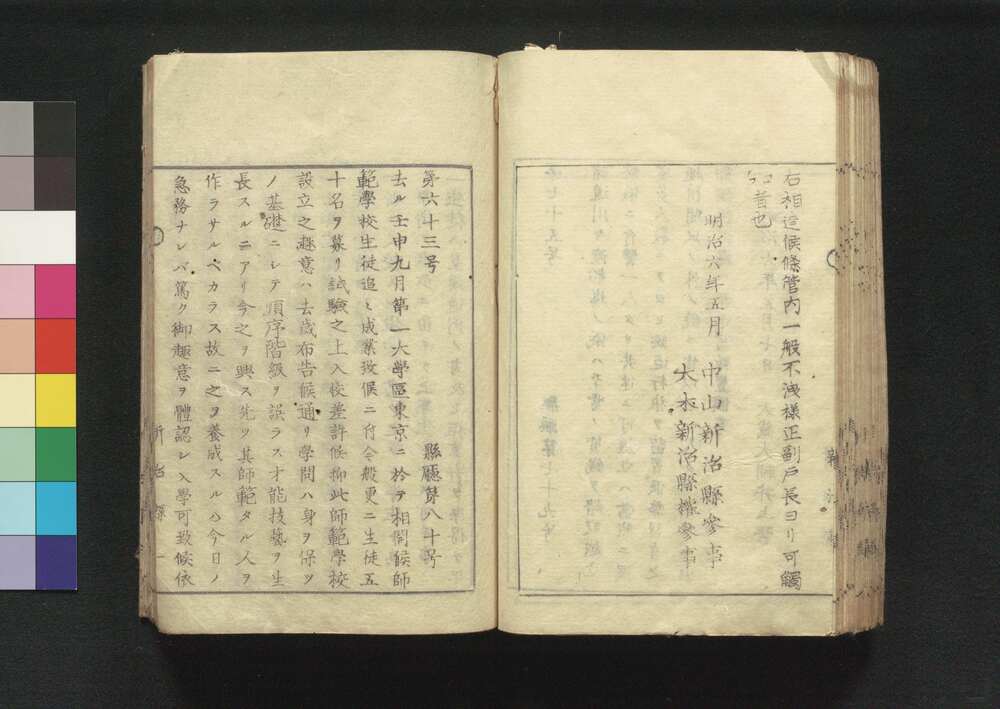 右相達候條管内一般不洩樣正副戸長ヨリ可觸
知者也
明治六年五月
中山新治縣參事
大木新治縣權參事
第六十三号
縣廳第八十号
去ル壬申九月第一大學區東京ニ於テ相開候師
範學校生徒追々成業致候ニ付今般更ニ生徒五
十名ヲ募リ試驗之上入校差許候抑此師範學校
設立之趣意ハ去歳布告候通リ學問ハ身ヲ保ツ
ノ基礎ニシテ順序階級ヲ誤ラス才能技藝ヲ生
長スルニアリ今之ヲ興ス先ツ其師範タル人ヲ
作ラサルベカラス故ニ之ヲ養成スルハ今日ノ
急務ナレバ篤ク御趣意ヲ體認シ入學可致候依
新治縣